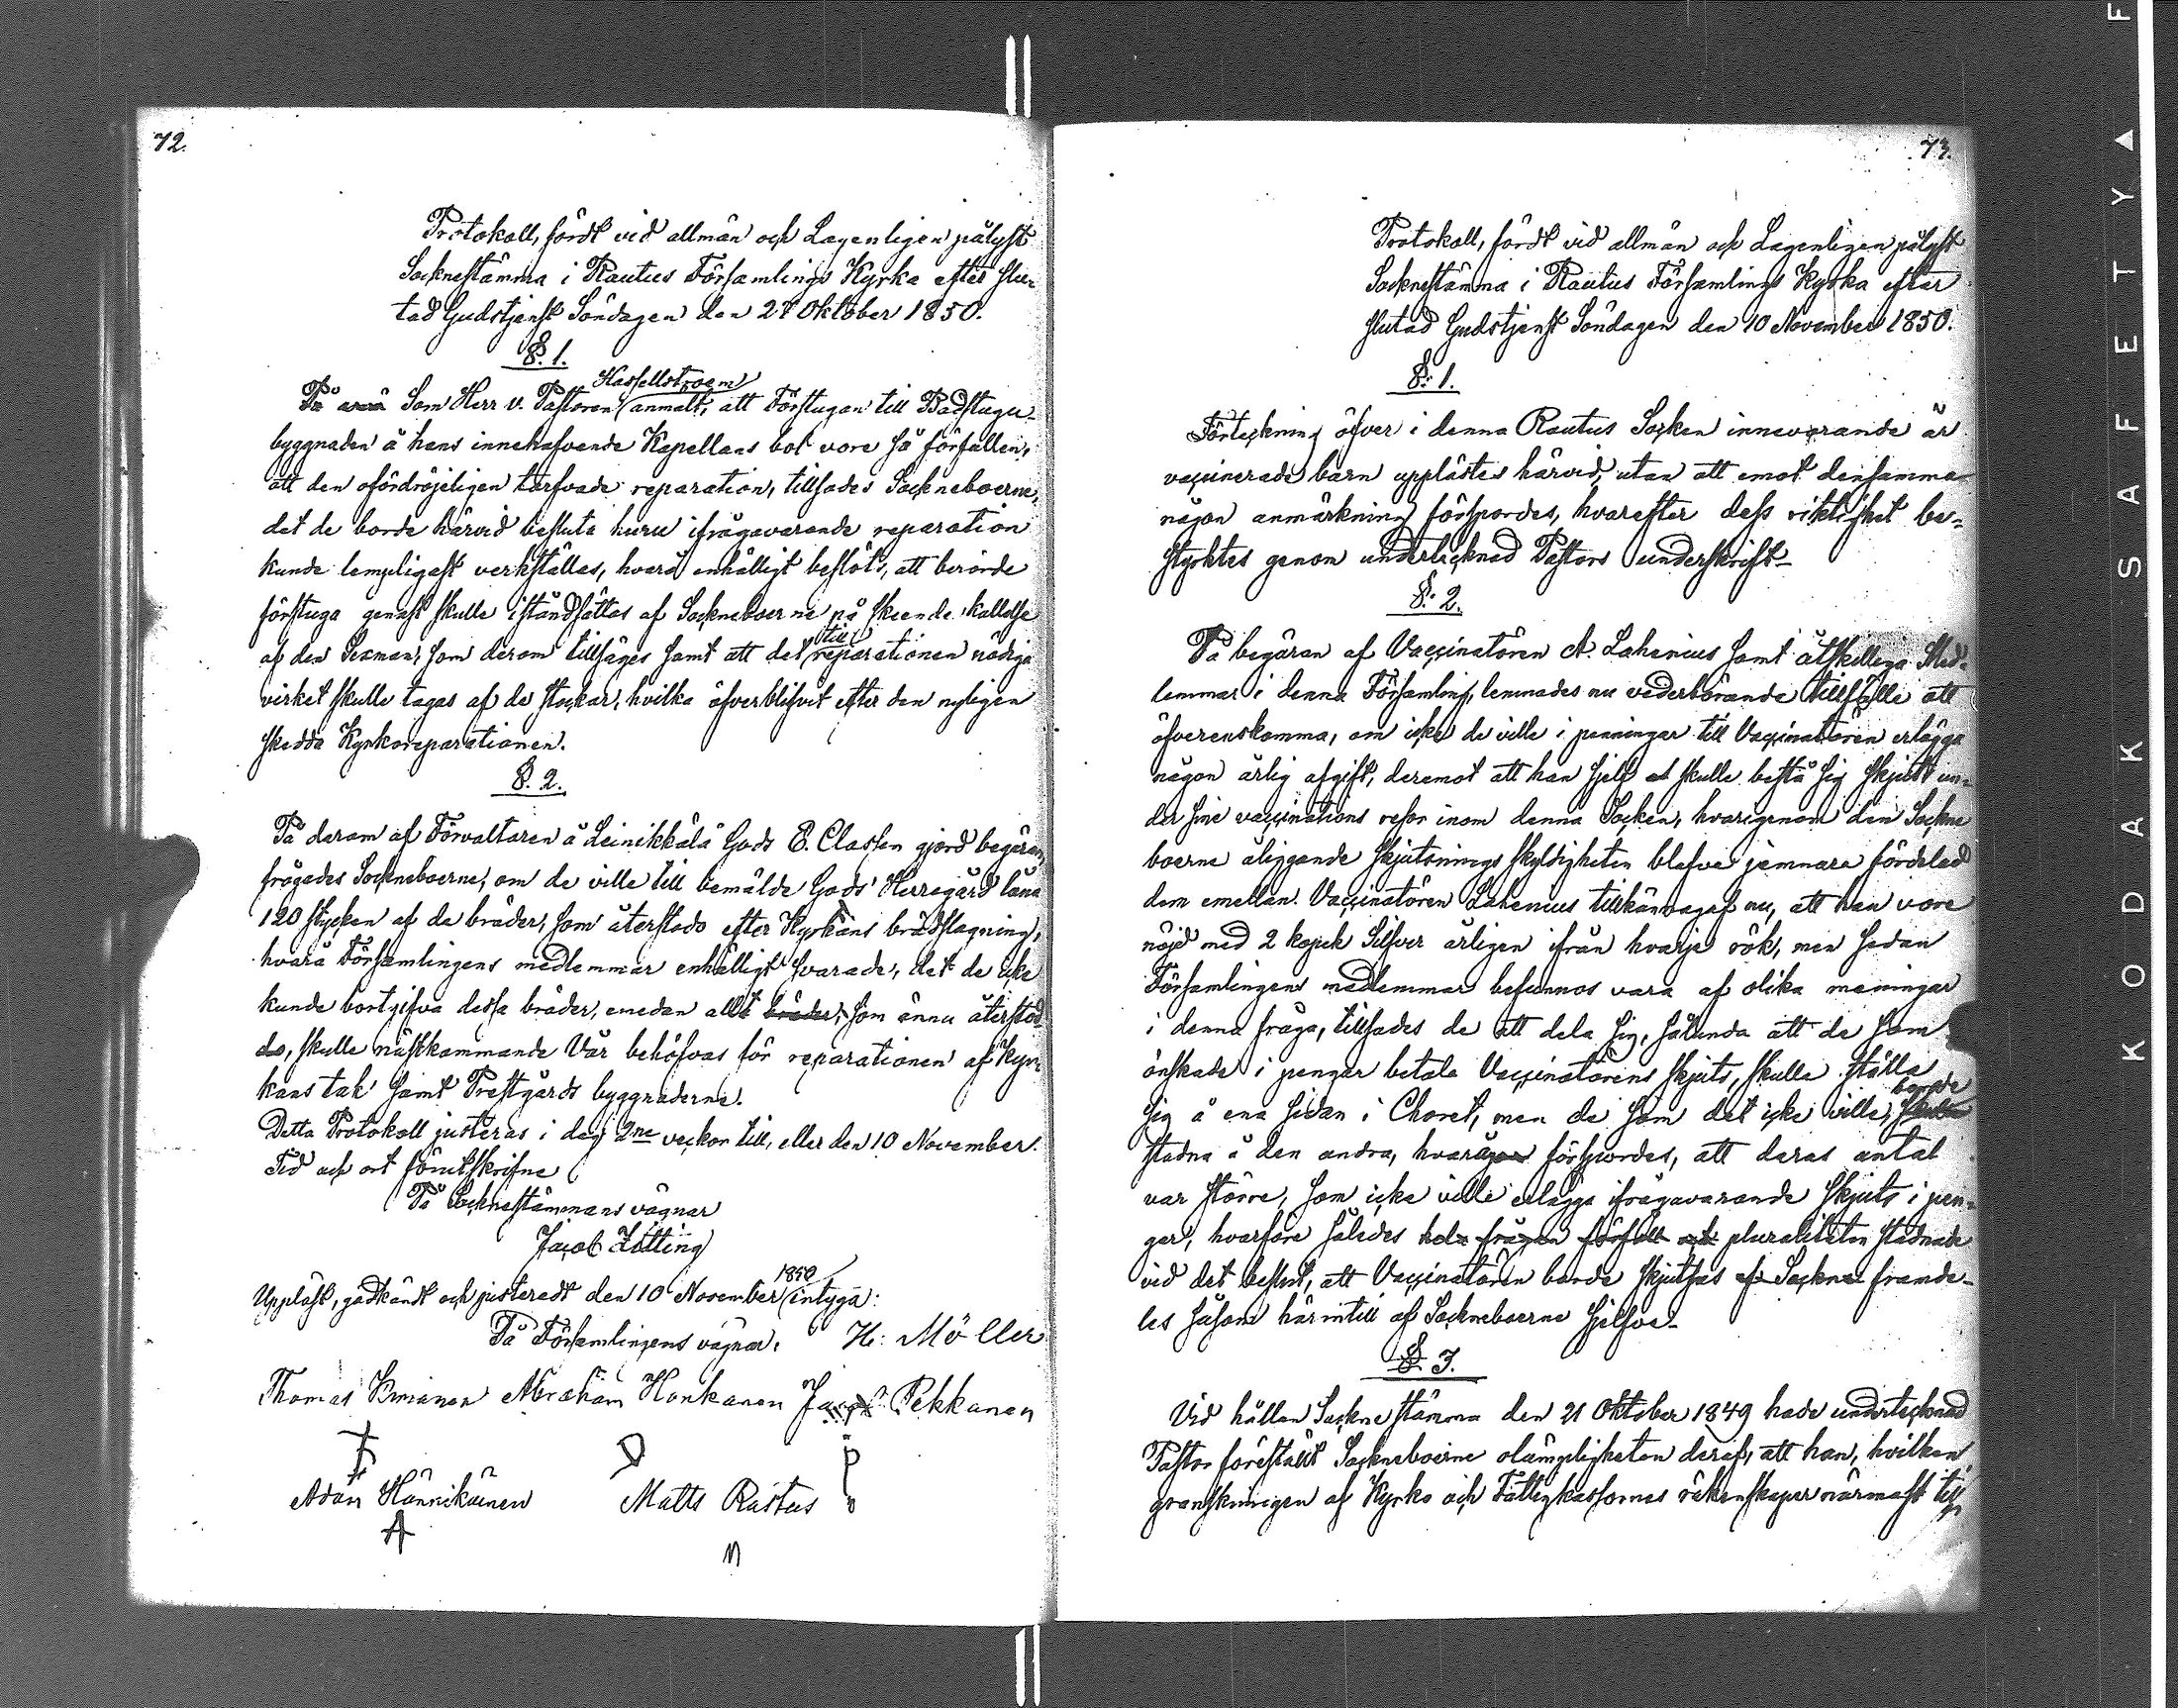 72.
Protokoll, fördt vid allmän och Lagenligen pålyst
Sockneſtämma i Rautus Förſamlings Kyrka efter ſlu-
tad Gudstjenſt Söndagen den 27 Oktober 1850.
§. 1.
Haſſellstroem
På Som Herr v. Pastoren anmält, att Förſtugan till Badſtugu-
byggnaden å hans innehafvande Kapellans bol vore ſå förfallen,
att den ofördröjeligen tarfvade reparation, tillſades Sockneboerne,
det de borde härvid beſluta huru ifrågavarande reparation
kunde lempligaſt verkſtällas, hvarå enhälligt beſlöts, att berörde
förſtuga genaſt ſkulle iſtåndſättas af Sockneboerne på ſkeende kallelſe
till
af den Sexman, ſom derom tillſäges ſamt att det reparationen nödiga
virket ſkulle tagas af de ſtockar, hvilka öfverblifvit efter den nyligen
ſkedda Kyrkoreparationen.
§. 2.
På derom af Förvaltaren å Leinikkälä Gods E. Claſſen gjord begäran,
frågades Sockneboerne, om de ville till bemälde Gods' Herregård låna
120 ſtycken af de bräder, ſom återſtodo efter Kyrkans brädſlagning,
hvarå Förſamlingens medlemmar enhälligt ſvarade, det de icke
kunde bortgifva deſſa bräder, emedan allt bräder, ſom ännu återſtod
do, ſkulle näſtkommande Vår behöfvas för reparationen af Kyr-
kans tak ſamt Preſtgårds byggnaderne.
Detta Protokoll juſteras i dag 2ne veckor till, eller den 10 November.
Tid och ort förutſkrifne
På Sockneſtämmans vägnar
Jacob Zitting
1850
Uppläſt, godkändt och juſteradt den 10 November intyga:
På Förſamlingens vägnar. H: Möller
Thomas Kimanen Abraham Honkanen Jacob Pekkanen
Adam Hännikäinen Matts Rastas
A
M
73.
Protokoll, fördt vid allmän och Lagenligen pålyſt
Sockneſtämma i Rautus Förſamlings Kyrka efter
ſlutad Gudstjenſt Söndagen den 10 November 1850.
§. 1.
Förteckning öfver i denna Rautus Socken innevarande år
vaccinerade barn uppläſtes härvid, utan att emot denſamma
någon anmärkning förſpordes, hvarefter deſs riktighet be-
ſtyrktes genom undertecknad Pastors underſkrift_
§. 2.
På begäran af Vaccinatören A. Lahenius ſamt åtſkilliga Med-
lemmar i denna Förſamling, lemnades nu vederbörande tillfälle att
öfverenskomma, om icke de ville i penningar till Vaccinatören erlägga
någon årlig afgift, deremot att han ſjelf ſkulle beſtå ſig ſkjuts un-
der ſine vaccinations reſor inom denna Socken, hvarigenom den Sockne
boerne åliggande ſkjutsnings ſkyldigheten blefve jemnare fördelad
dem emellan. Vaccinatören Lahenius tillkännagaf nu, att han vore
nöjd med 2 kopek Silfver årligen ifrån hvarje rök, men ſedan
Förſamlingens medlemmar befunnos vara af olika meningar
i denna fråga, tillſades de att dela ſig, ſålunda att de ſom
önſkade i pengar betala Vaccinatörens ſkjuts, ſkulle ſtälla
borde
ſig å ena ſidan i Choret, men de ſom det icke ville,
ſtadna å den andra, hvaraf förſpordes, att deras antal
var ſtörre, ſom icke ville erlägga ifrågavarande ſkjuts i pen-
gar, hvarföre ſåledes hela frågan förföll och pluraliteten ſtadnade
vid det beſlut, att Vaccinatören borde ſkjutſas af Sockne framde-
les ſåſom härintill af Sockneboerne ſjelfve_
§ 3.
Vid hållen Sockneſtämma den 21 Oktober 1849 hade undertecknad
Pastor föreſtällt Sockneboerne olämpligheten deraf, att han, hvilken
granſkningen af Kyrko och Fattigkaſſornes räkenſkaper närmaſt till
KODAK SAFETY F